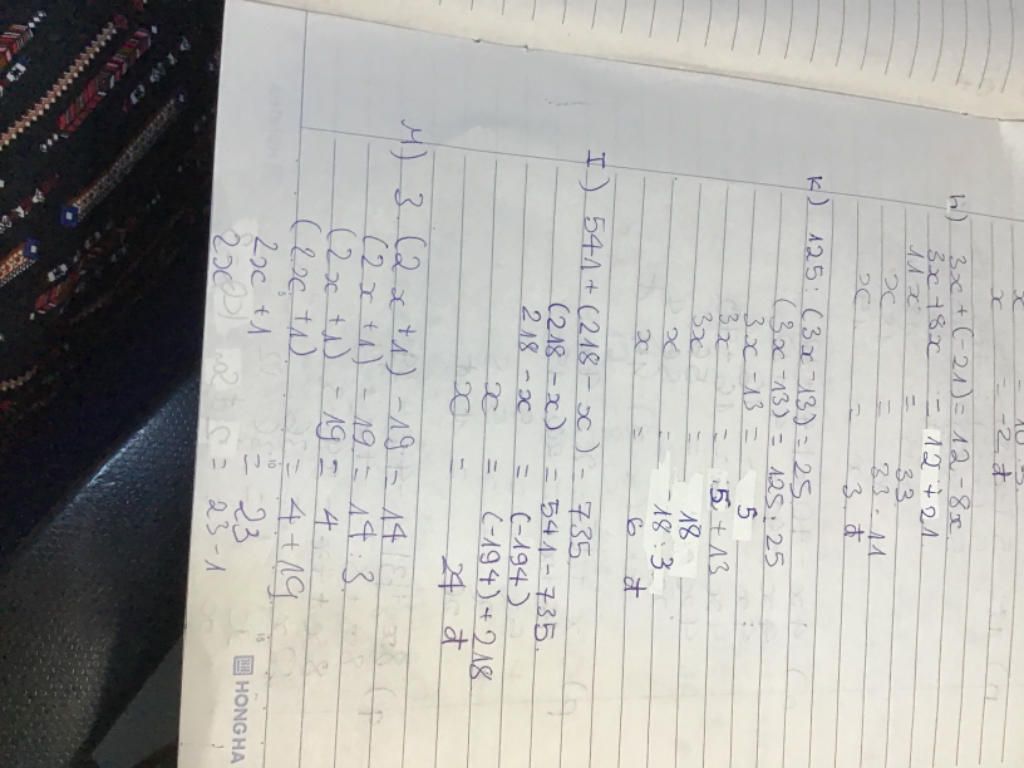 x = 10 : 5
x = -2
H) 3x + (-21) = 12 - 8x
3x + 8x = 12 + 21
11x = 33
x = 33 : 11
x = 3
K) 125 : (3x - 13) = 25
(3x - 13) = 125 : 25
3x - 13 = 5
3x = 5 + 13
3x = 18
x = 18 : 3
x = 6
I) 541 + (218 - x) = 735
(218 - x) = 541 - 735
218 - x = (-194)
x = (-194) + 218
x = 24
M) 3 (2x + 1) - 19 = 14
(2x + 1) - 19 = 14 : 3
(2x + 1) - 19 = 4
(2x + 1) = 4 + 19
2x + 1 = 23
2x = 23 - 1
HONG HA